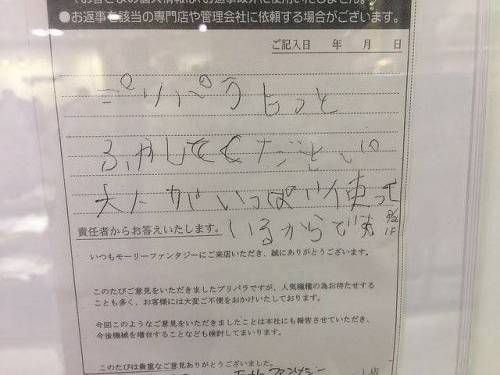 ●お返事を該当の専門店や管理会社に依頼する場合がございます。
ご記入日 年 月 日
プリパラもっと
ふやしてください
大人がいっぱい使って
いるからです
責任者からお答えいたします。
いつもモーリーファンタジーにご来店いただき、誠にありがとうございます。
このたびご意見をいただきましたプリパラですが、人気機種の為お待たせする
ことも多く、お客様には大変ご不便をおかけいたしております。
今回このようなご意見をいただきましたことは本社にも報告させていただき、
今後機械を増台することなども検討してまいります。
このたびは貴重なご意見ありがとうございました。